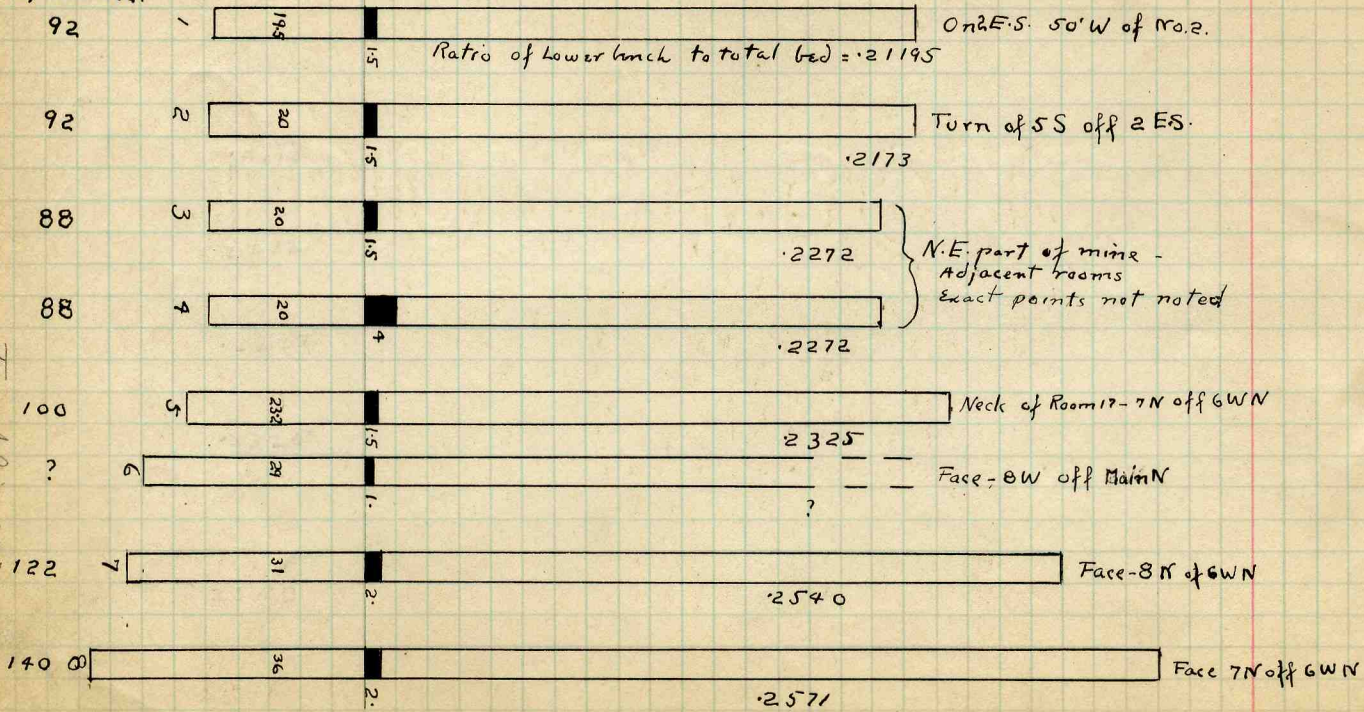 92 1 19.5 1.5 On 2 E.S. 50' W of No.2.
Ratio of Lower bench to total bed = .21195
92 2 20 1.5 Turn of 5 S off 2 E.S.
.2173
88 3 20 1.5
.2272
N.E. part of mine -
Adjacent rooms
Exact points not noted
88 4 20 4
.2272
100 5 23.2 1.5 Neck of Room 17 - 7N off 6WN
.2325
? 6 29 1. Face - 8W off Main N
?
122 7 31 2. Face - 8 N of 6WN
.2540
140 8 36 2. Face 7N off 6WN
.2571